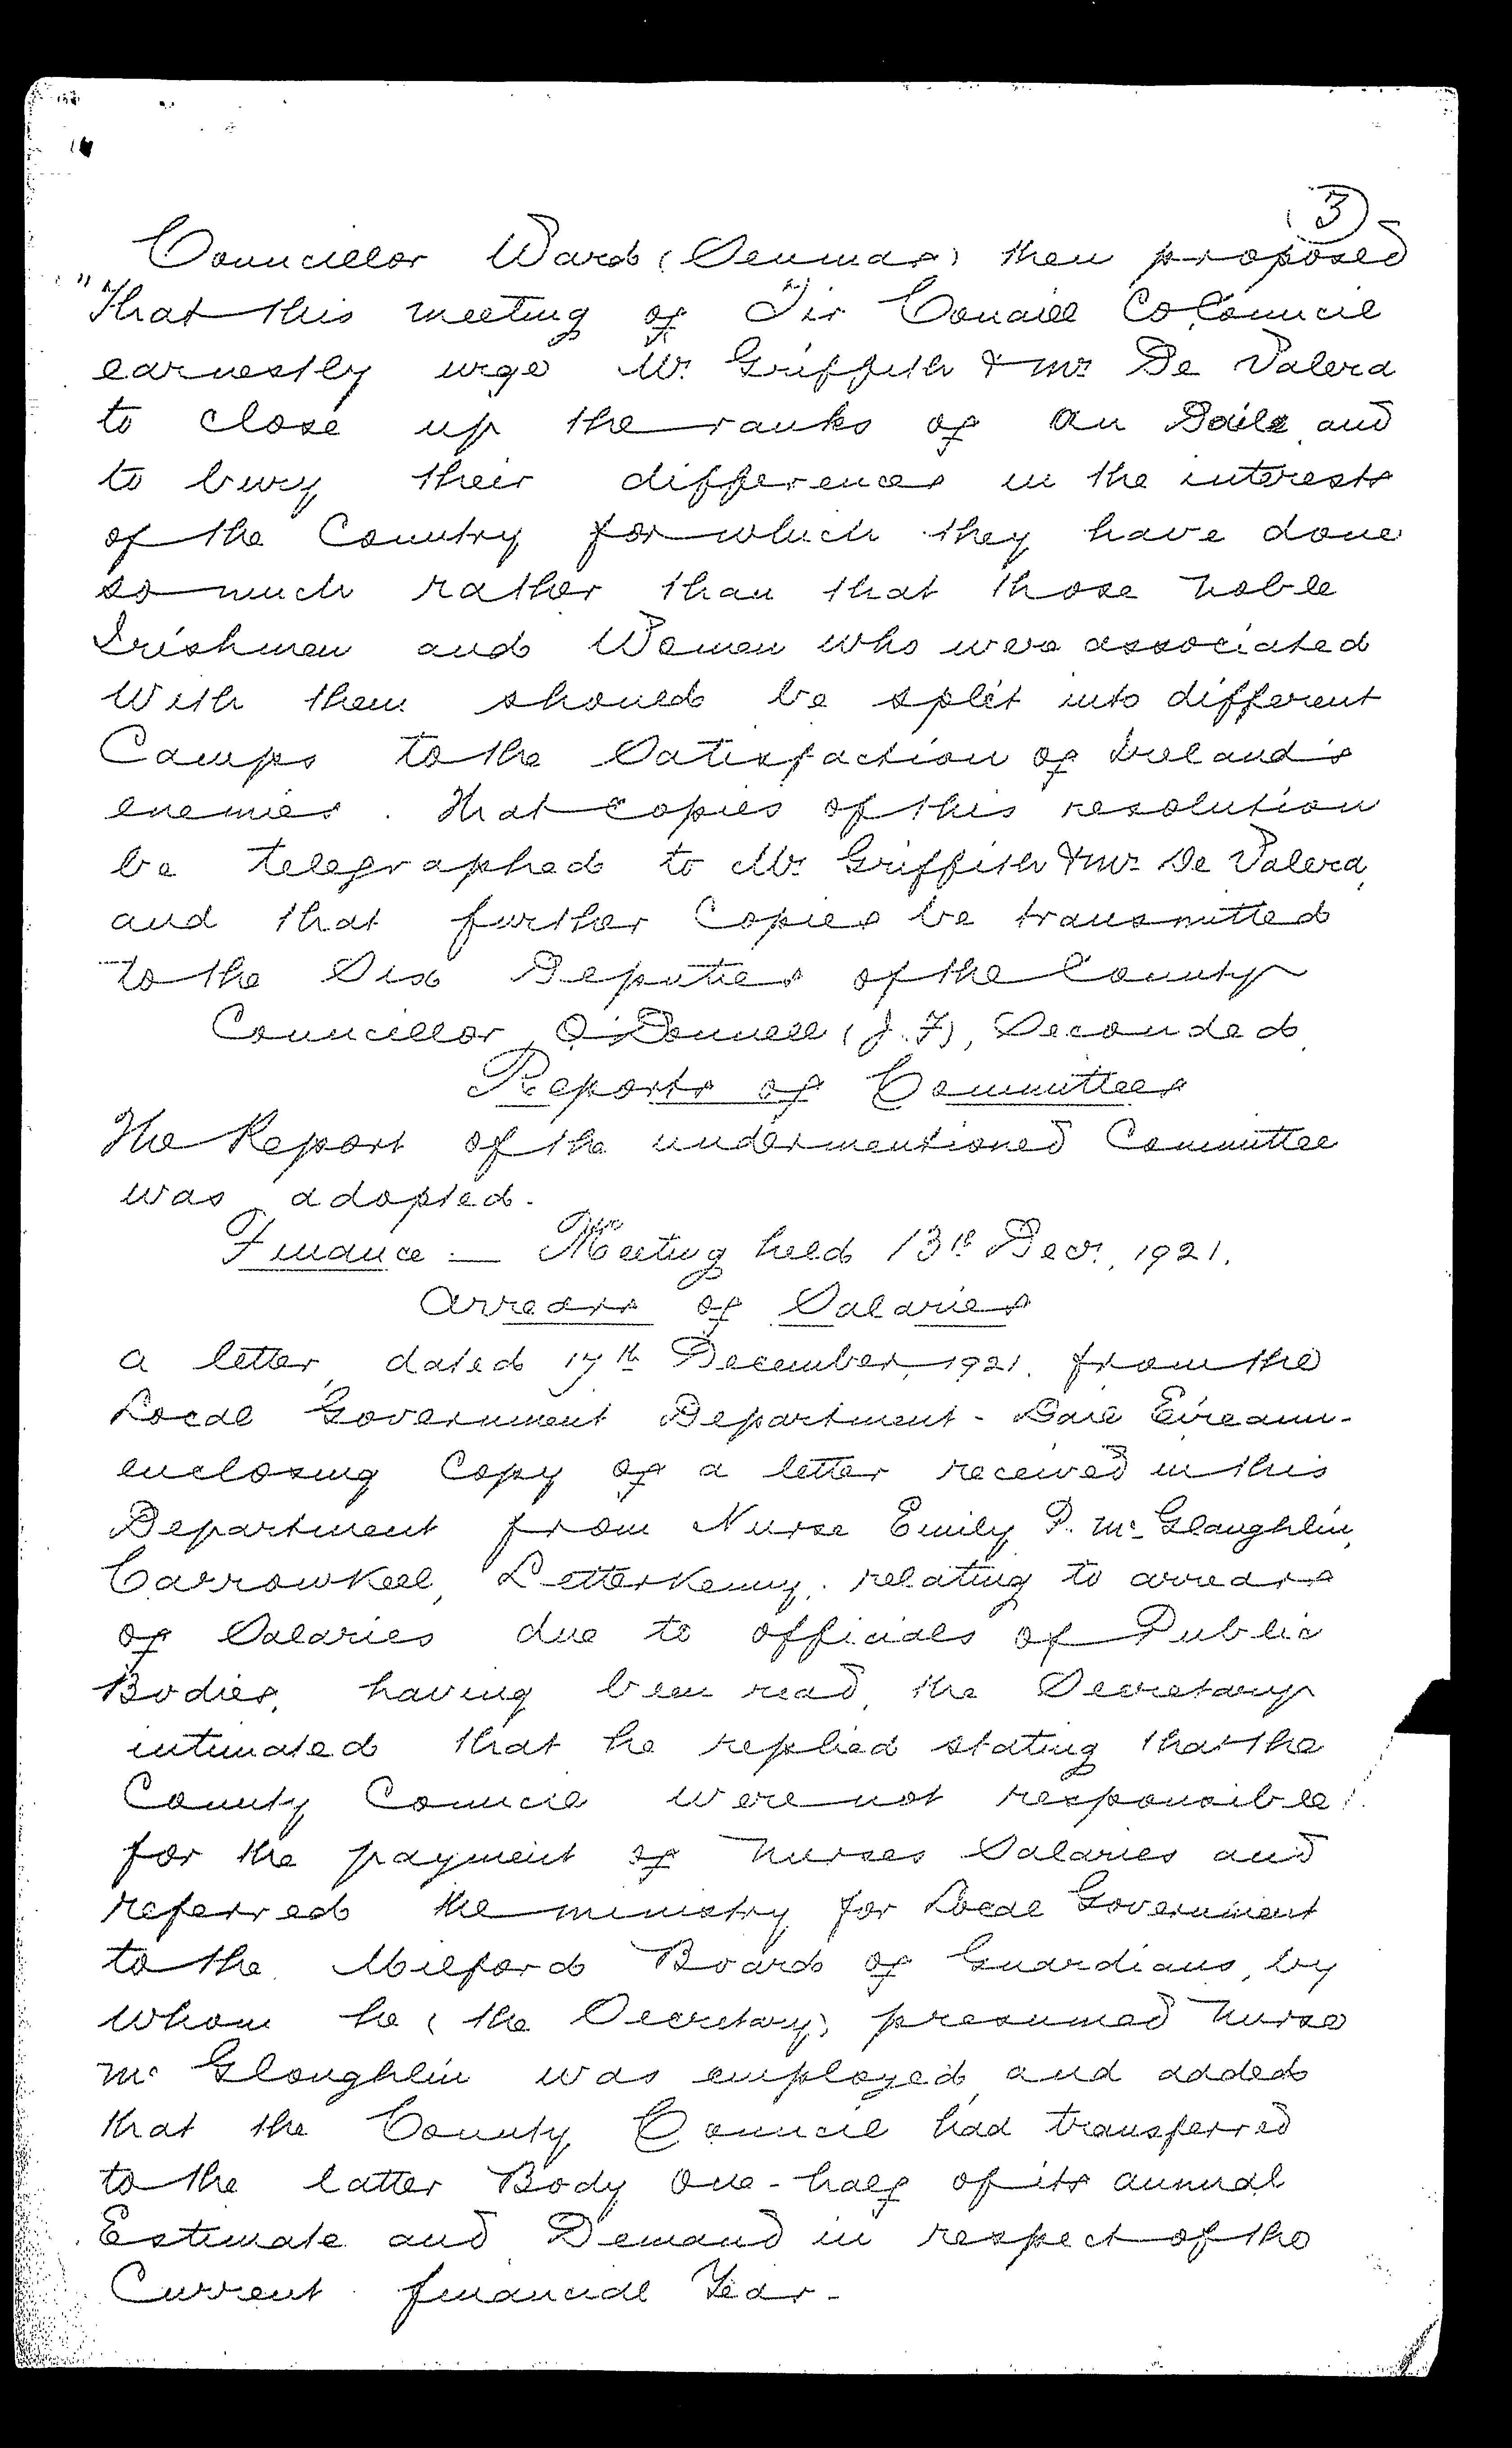 3
Councillor Ward (Seumas) then proposed
"That this meeting of Tir Conaill Co Council
earnestly urge Mr. Griffith & Mr. De Valera
to close up the ranks of An Dail and
to bury their differences in the interests
of the Country for which they have done
so much rather than that those noble
Irishmen and Women who were associated
with them should be split into different
Camps to the Satisfaction of Ireland's
enemies. That copies of this resolution
be telegraphed to Mr. Griffith & Mr. De Valera,
and that further Copies be transmitted
to the Six Deputies of the County
Councillor O'Donnell (J. F), Seconded.
Reports of Committees
The Report of the undermentioned Committee
was adopted.
Finance — Meeting held 13th Decr. 1921.
Arrears of Salaries
A letter dated 17th December, 1921. from the
Local Government Department - Dail Eireann -
enclosing Copy of a letter received in this
Department from Nurse Emily P. McGloughlin,
Carrowkeel, Letterkenny. relating to arrears
of Salaries due to officials of Public
Bodies, having been read, the Secretary
intimated that he replied stating that the
County Council were not responsible
for the payment of Nurses Salaries and
referred the ministry for Local Government
to the Milford Board of Guardians, by
whom he (the Secretary) presumed Nurse
McGloughlin was employed, and added
that the County Council had transferred
to the latter Body One-half of its annual
Estimate and Demand in respect of the
Current financial Year.